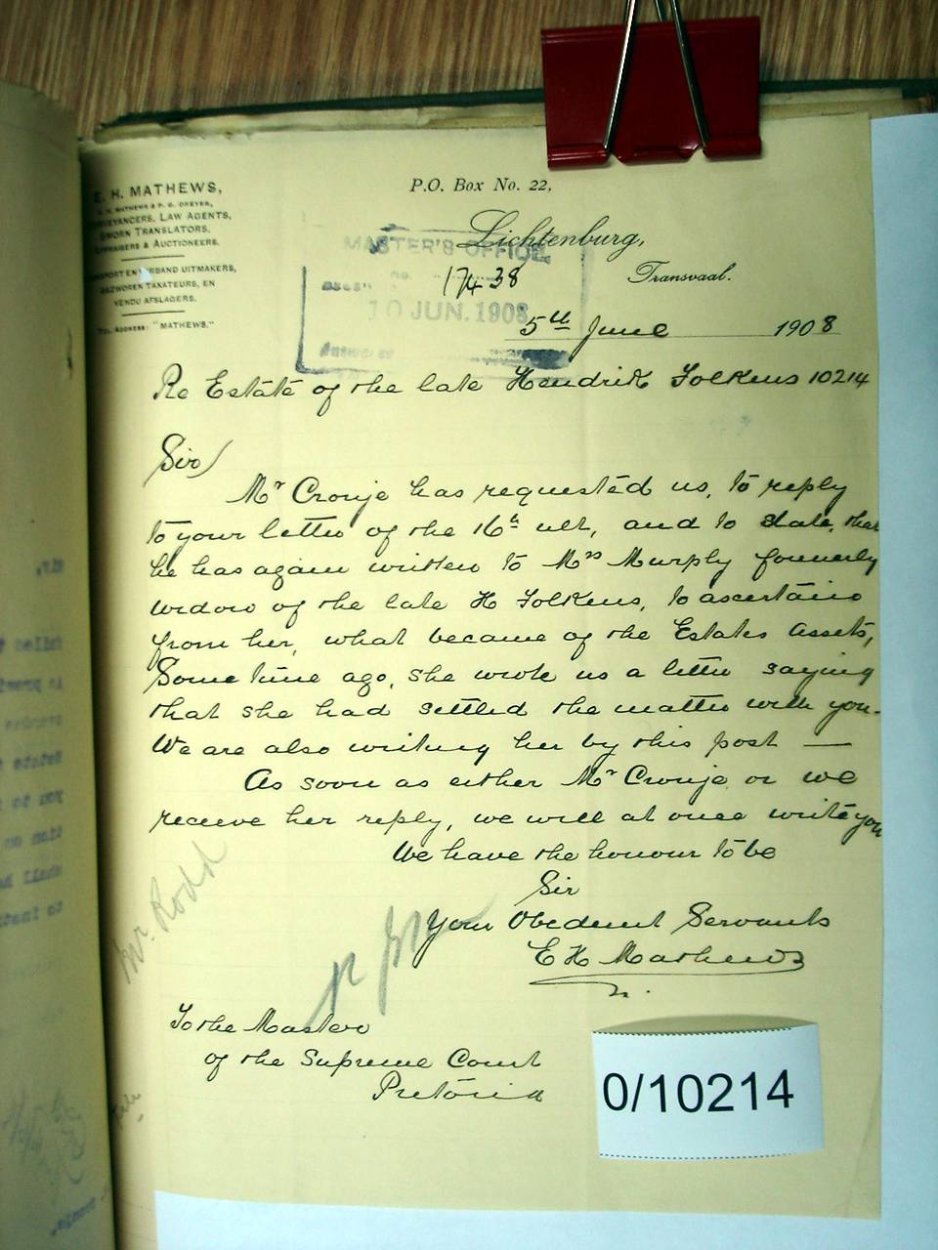 E. H. MATHEWS,
MATHEWS & P. G. DREYER,
CONVEYANCERS, LAW AGENTS,
SWORN TRANSLATORS,
APPRAISERS & AUCTIONEERS.
TRANSPORT EN VERBAND UITMAKERS,
GEZWOREN TAXATEURS, EN
VENDU AFSLAGERS.
TEL. ADDRESS: "MATHEWS."
P.O. Box No. 22,
Lichtenburg,
Transvaal.
MASTER'S OFFICE
17438
10 JUN. 1908
5th June 1908
Re Estate of the late Hendrik Folkens 10214
Sir/
Mr Cronje has requested us, to reply
to your letter of the 16th ult, and to state, that
he has again written to Mrs Murply formerly
widow of the late H Folkens, to ascertain
from her, what became of the Estates Assets,
Some time ago, she wrote us a letter saying
that she had settled the matter with you.
We are also writing her by this post —
As soon as either Mr Cronje or we
receive her reply, we will at once write you
We have the honour to be
Sir
Your Obedient Servants
E H Mathews
Mr. Rodd
To the Master
of the Supreme Court
Pretoria
0/10214